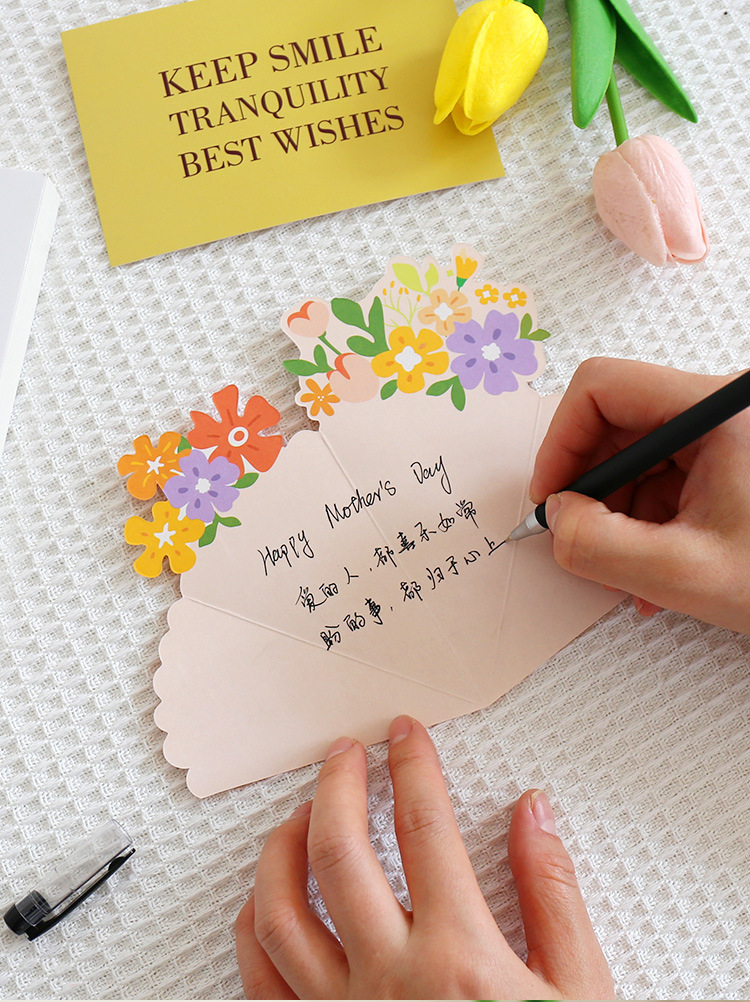 KEEP SMILE
TRANQUILITY
BEST WISHES
Happy Mother's Day
爱的人，都喜乐如常
盼的事，都归于心上